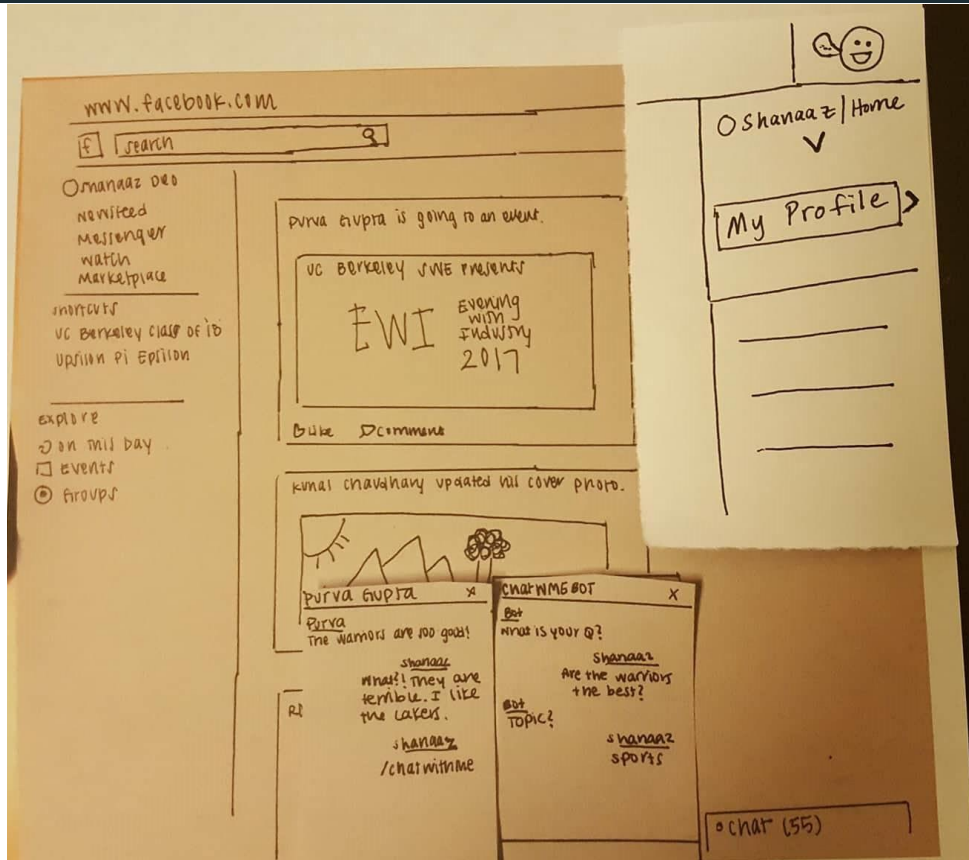 www.facebook.com
f search
Shanaaz Deo
Newsfeed
Messenger
Watch
Marketplace
shortcuts
UC Berkeley Class of 18
Upsilon Pi Epsilon
Explore
on this Day
Events
Groups
Purva Gupta is going to an event.
UC Berkeley SWE Presents
EWI
Evening
with
Industry
2017
Like comment
Kunal Chaudhary updated his cover photo.
Purva Gupta x
Purva
The warriors are soo good!
Shanaaz
What?! They are
terrible. I like
the Lakers.
shanaaz
/chatwithme
ChatWMEBOT x
Bot
What is your Q?
Shanaaz
Are the warriors
the best?
Bot
Topic?
shanaaz
sports
Shanaaz | Home
My Profile >
chat (55)